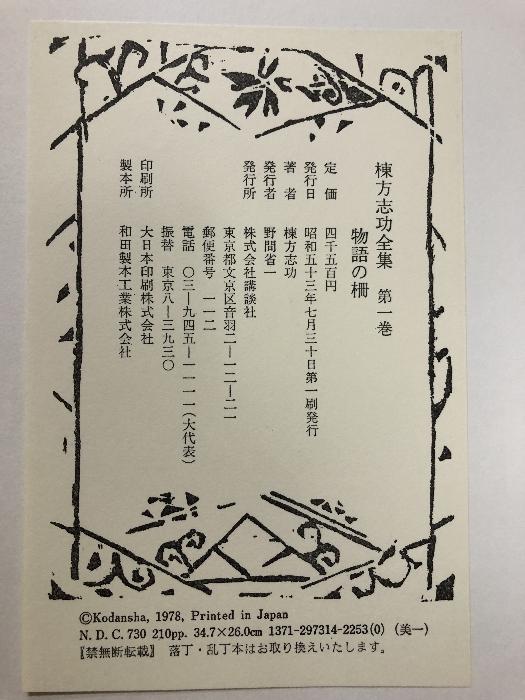 棟方志功全集 第一巻
物語の柵
定 価 四千五百円
発行日 昭和五十三年七月三十日第一刷発行
著 者 棟方志功
発行者 野間省一
発行所 株式会社講談社
東京都文京区音羽二ー一二ー二一
郵便番号 一一二
電話 〇三ー九四五ー一一一一(大代表)
振替 東京八ー三九三〇
印刷所 大日本印刷株式会社
製本所 和田製本工業株式会社
©Kodansha, 1978, Printed in Japan
N. D. C. 730 210pp. 34.7×26.0cm 1371-297314-2253(0) (美一)
〖禁無断転載〗 落丁・乱丁本はお取り換えいたします。